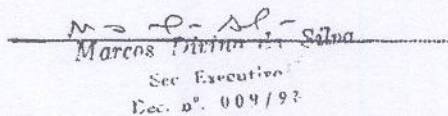 Marcos Divino da Silva
Sec Executivo
Dec. nº. 009/97